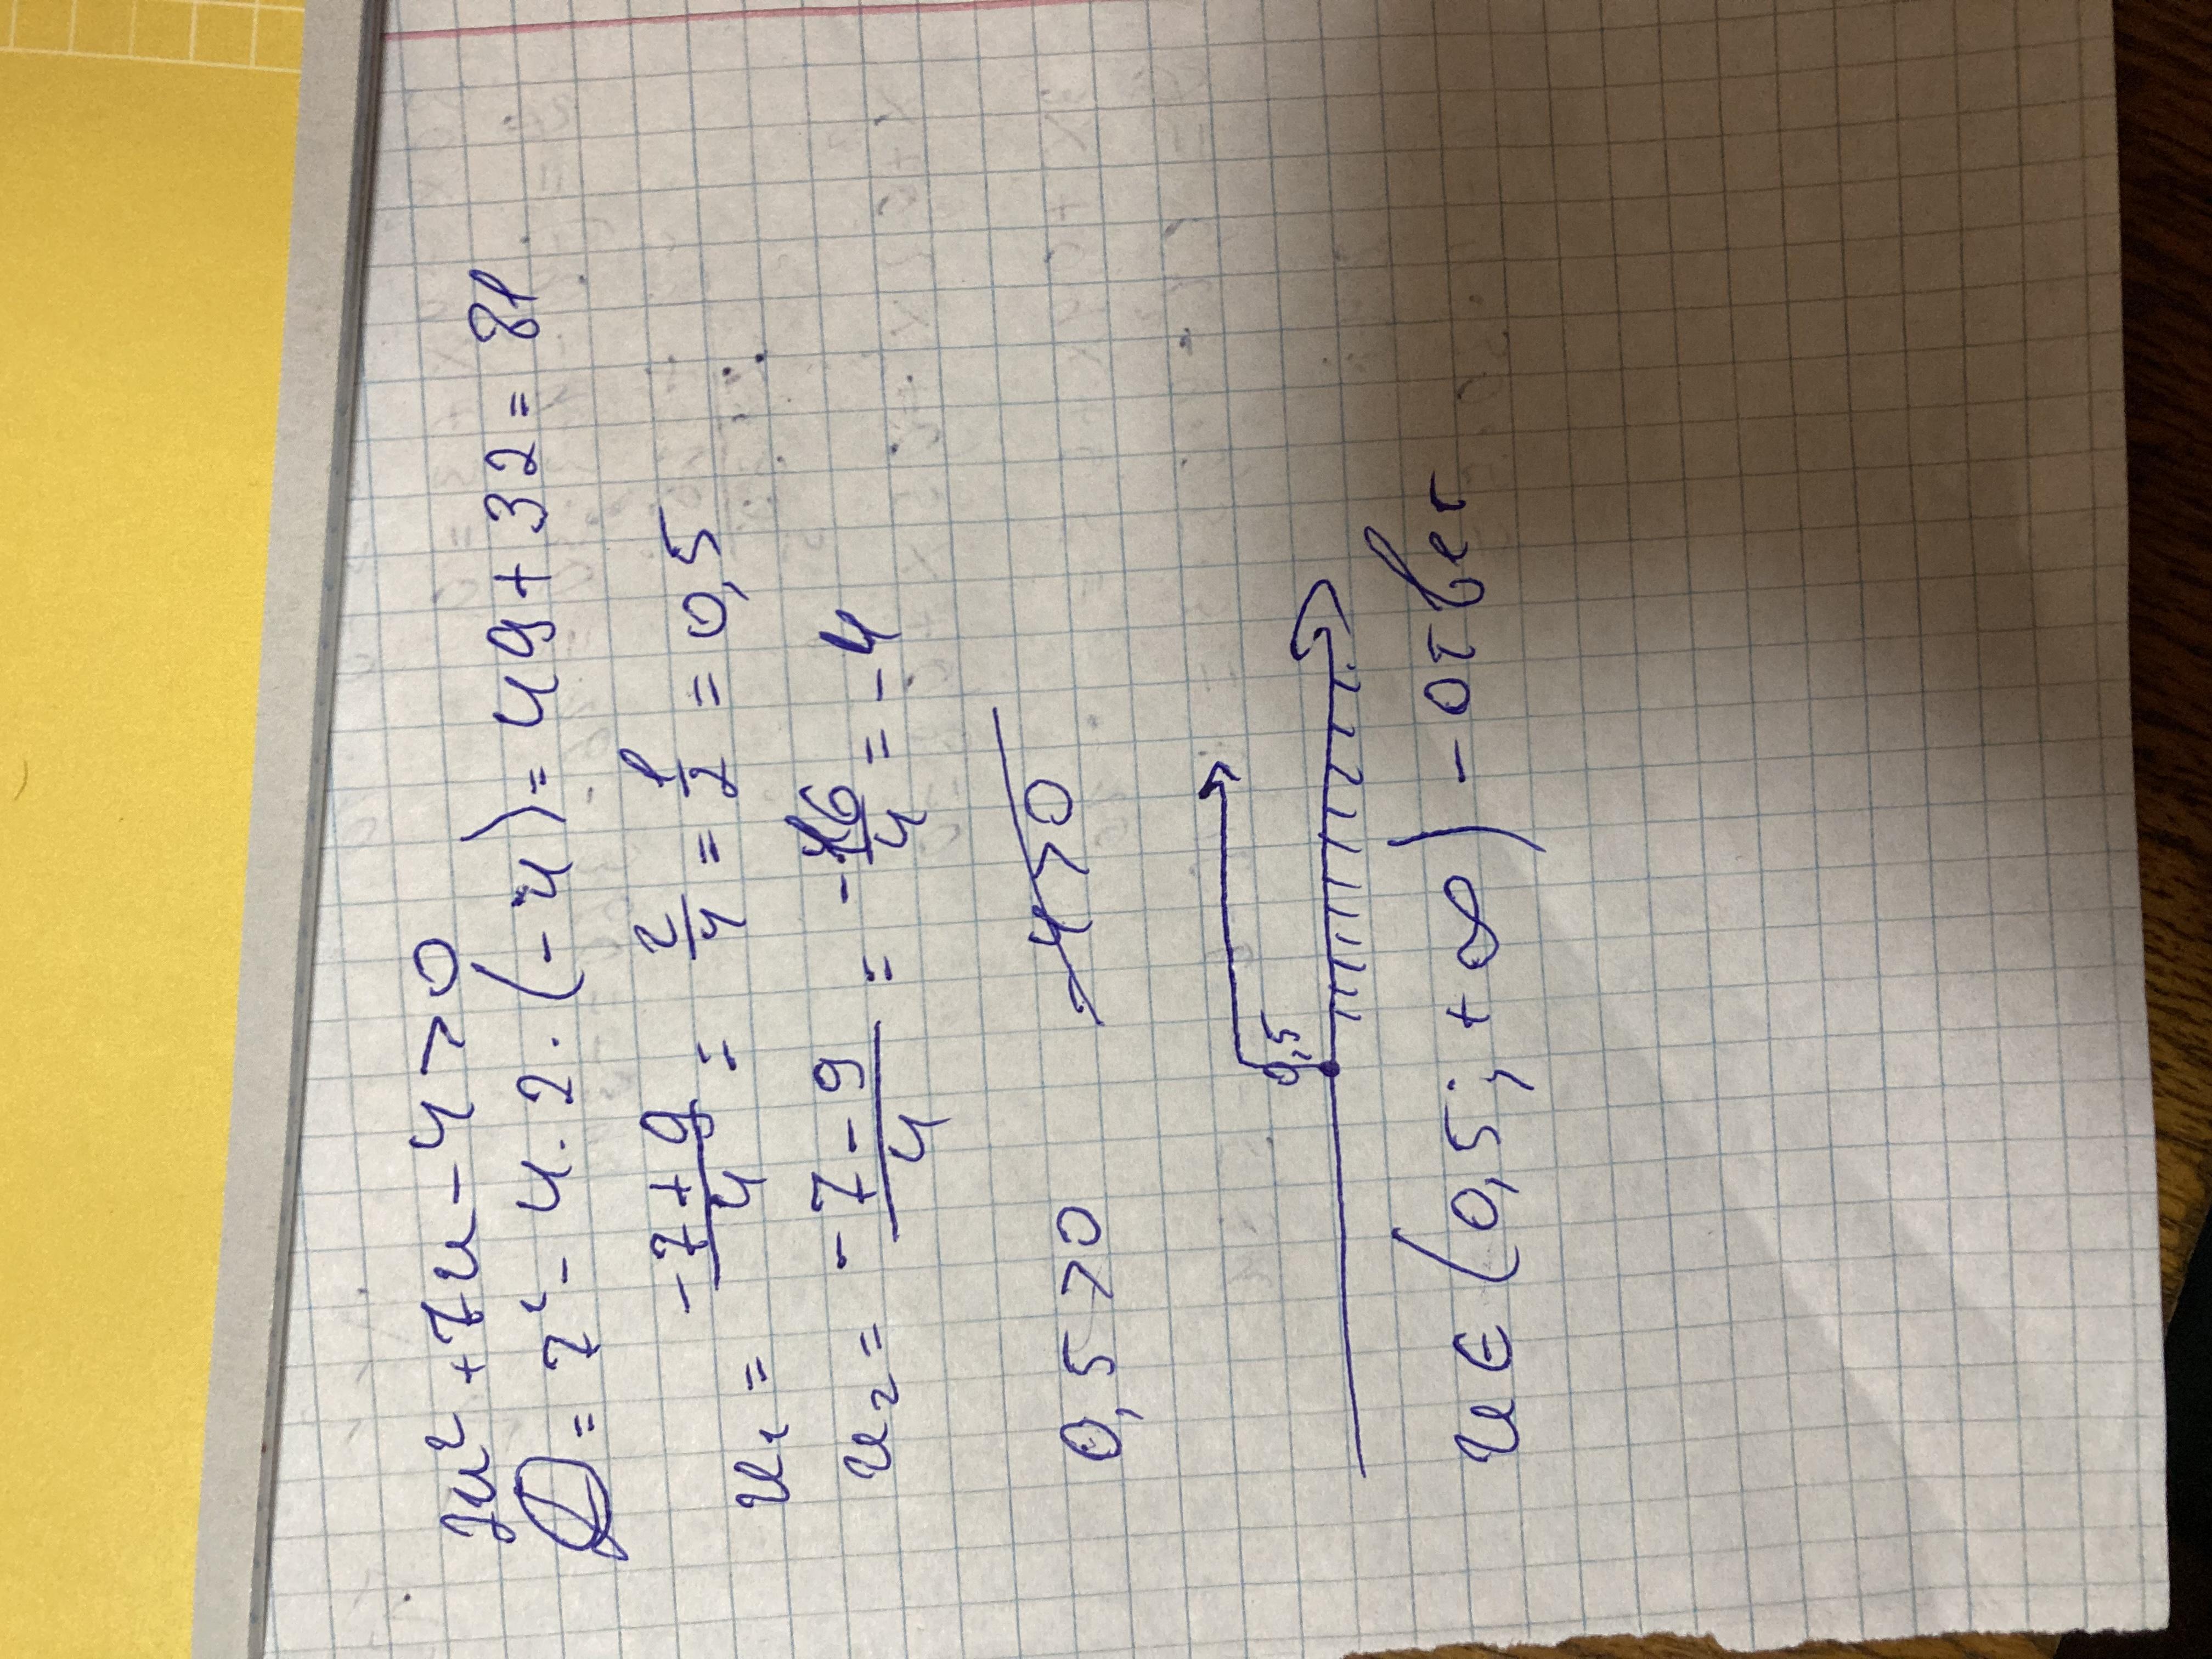 2u² + 7u - 4 > 0
D = 7² - 4 · 2 · (-4) = 49 + 32 = 81
u₁ = -7+9/4 = 2/4 = 1/2 = 0,5
u₂ = -7-9/4 = -16/4 = -4
0,5 > 0 -4 > 0
0,5
u ∈ (0,5; +∞) - ответ